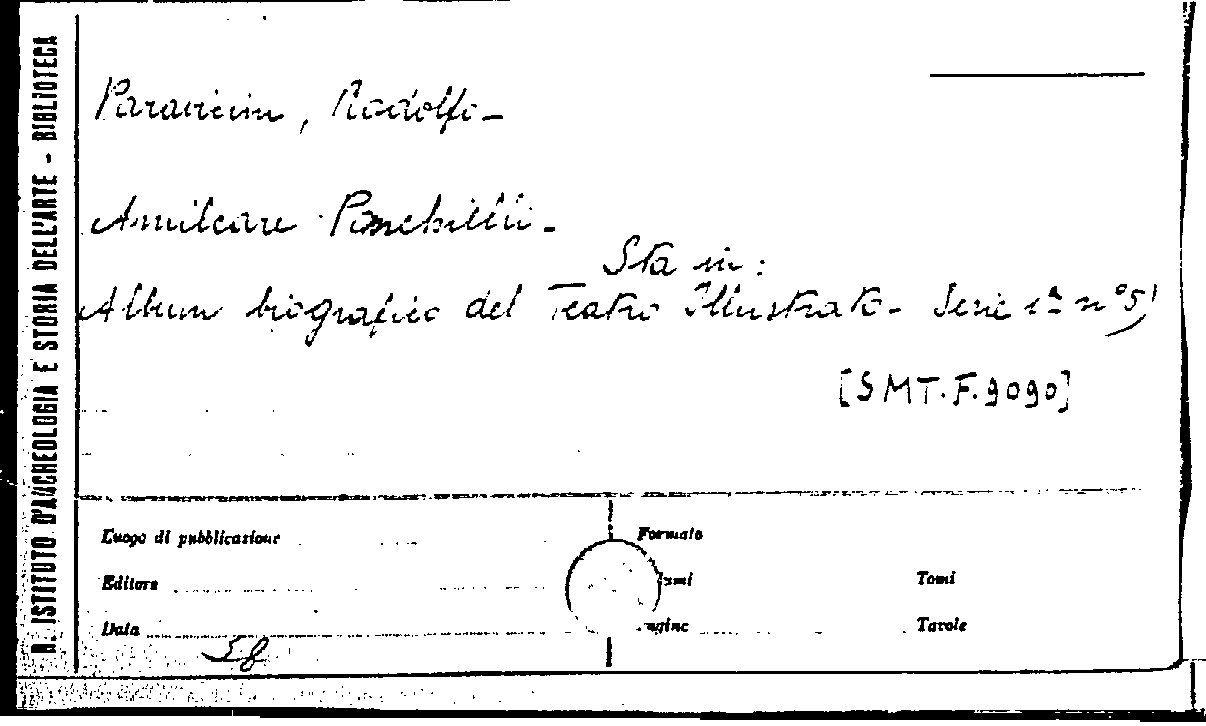 R. ISTITUTO D'ARCHEOLOGIA E STORIA DELL'ARTE - BIBLIOTECA
Paravicini, Rodolfo-
Amilcare Ponchielli-
Sta in:
Album biografico del Teatro Illustrato- Serie 1ª nº 5)
[SMT.F.9090]
Luogo di pubblicazione
Formato
Editore
Tomi
Data
Tavole